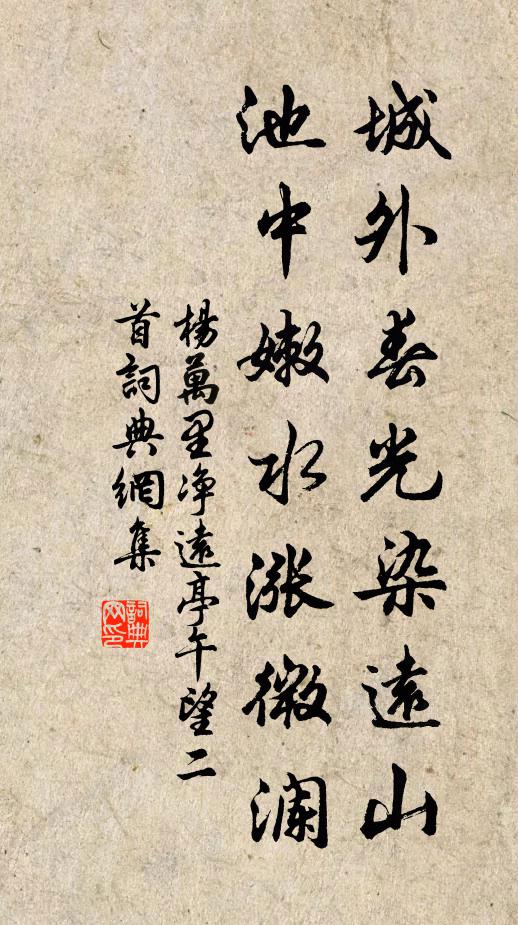 城外春光染遠山
池中嫩水漲微瀾
楊萬里淨遠亭午望二
首詞典網集
詞典
网印